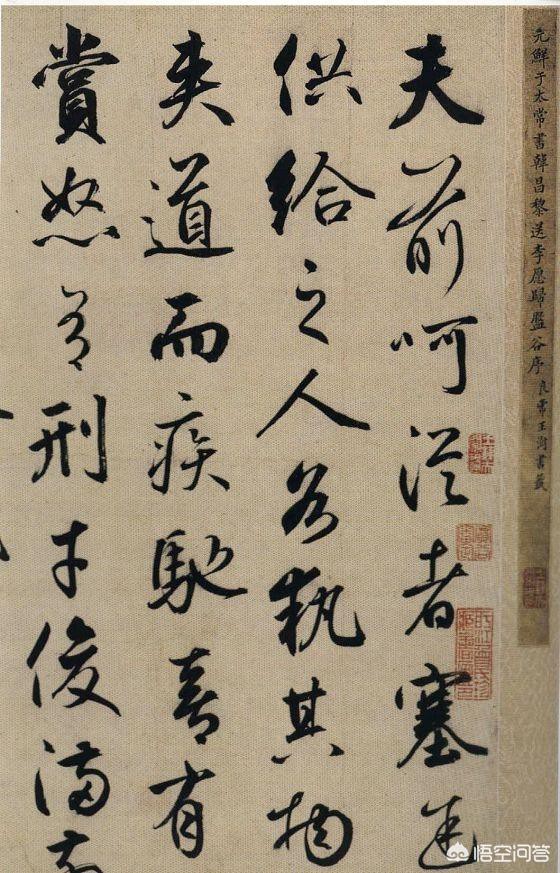 元鮮于太常書韓昌黎送李愿歸盤谷序 良常王澍書籤
夫前呵從者塞途
供給之人各執其物
夾道而疾馳喜有
賞怒有刑才俊滿前
悟空问答